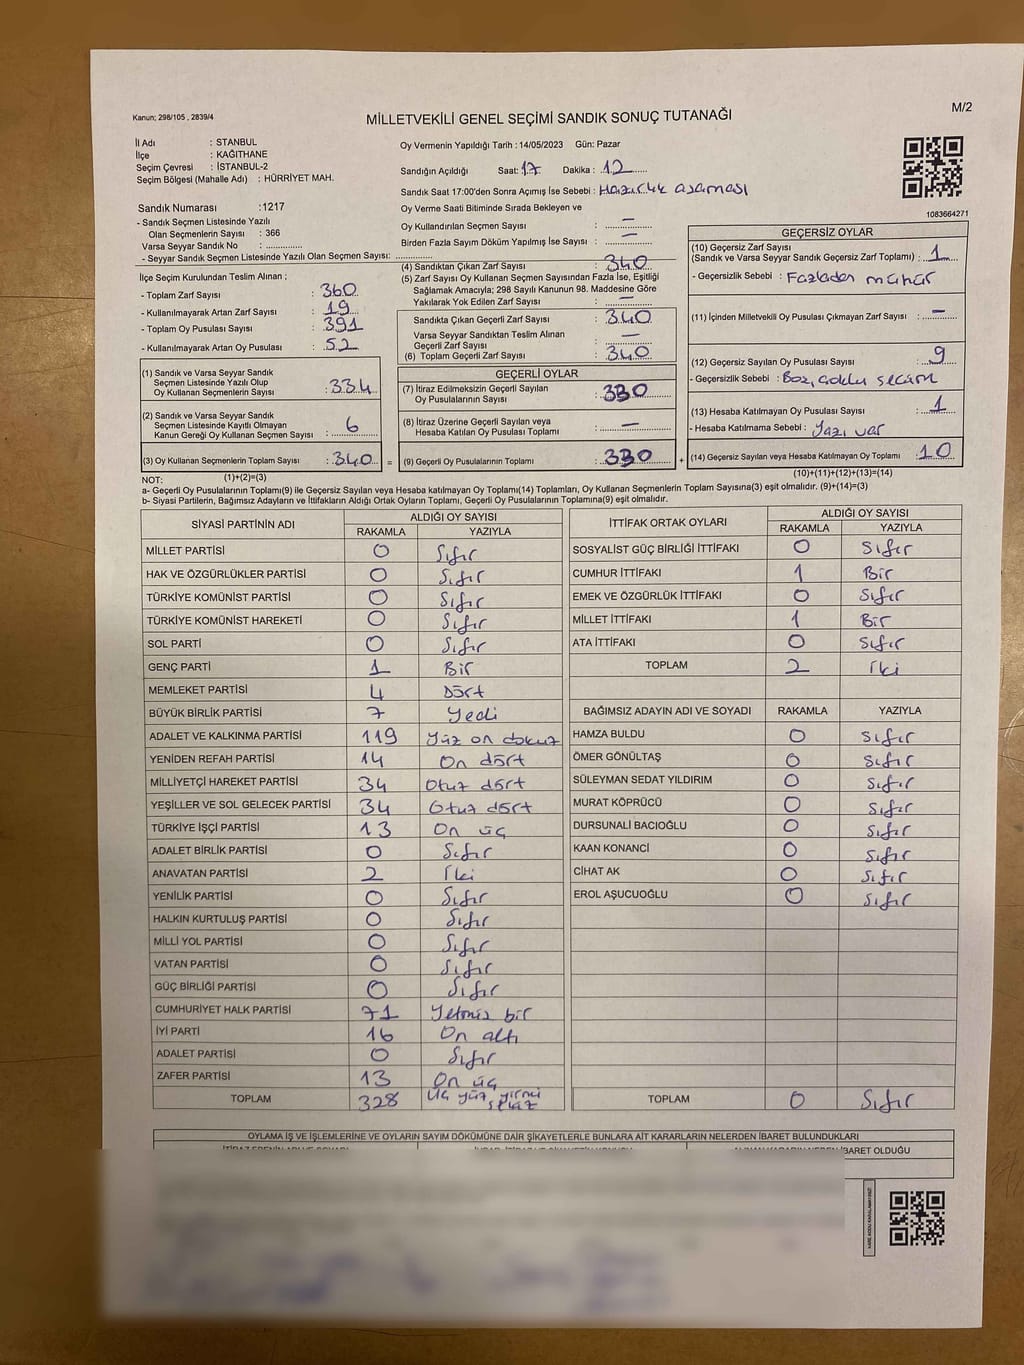 M/2
Kanun; 298/105 , 2839/4
MİLLETVEKİLİ GENEL SEÇİMİ SANDIK SONUÇ TUTANAĞI
İl Adı : STANBUL
İlçe : KAĞITHANE
Seçim Çevresi : İSTANBUL-2
Seçim Bölgesi (Mahalle Adı) : HÜRRİYET MAH.
Sandık Numarası :1217
- Sandık Seçmen Listesinde Yazılı
Olan Seçmenlerin Sayısı : 366
Varsa Seyyar Sandık No : ..............
- Seyyar Sandık Seçmen Listesinde Yazılı Olan Seçmen Sayısı: ..............
Oy Vermenin Yapıldığı Tarih : 14/05/2023 Gün: Pazar
Sandığın Açıldığı Saat: 17 Dakika : 12
Sandık Saat 17:00'den Sonra Açımış İse Sebebi : Hazırlık aşaması
Oy Verme Saati Bitiminde Sırada Bekleyen ve
Oy Kullandırılan Seçmen Sayısı : —
Birden Fazla Sayım Döküm Yapılmış İse Sayısı : —
1083664271
İlçe Seçim Kurulundan Teslim Alınan ;
- Toplam Zarf Sayısı : 360
- Kullanılmayarak Artan Zarf Sayısı : 19
- Toplam Oy Pusulası Sayısı : 391
- Kullanılmayarak Artan Oy Pusulası : 52
(1) Sandık ve Varsa Seyyar Sandık
Seçmen Listesinde Yazılı Olup
Oy Kullanan Seçmenlerin Sayısı : 334
(2) Sandık ve Varsa Seyyar Sandık
Seçmen Listesinde Kayıtlı Olmayan
Kanun Gereği Oy Kullanan Seçmen Sayısı : 6
(3) Oy Kullanan Seçmenlerin Toplam Sayısı : 340 =
(1)+(2)=(3)
(4) Sandıktan Çıkan Zarf Sayısı : 340
(5) Zarf Sayısı Oy Kullanan Seçmen Sayısından Fazla İse, Eşitliği
Sağlamak Amacıyla; 298 Sayılı Kanunun 98. Maddesine Göre
Yakılarak Yok Edilen Zarf Sayısı : —
Sandıkta Çıkan Geçerli Zarf Sayısı : 340
Varsa Seyyar Sandıktan Teslim Alınan
Geçerli Zarf Sayısı : —
(6) Toplam Geçerli Zarf Sayısı : 340
GEÇERLİ OYLAR
(7) İtiraz Edilmeksizin Geçerli Sayılan
Oy Pusulalarının Sayısı : 330
(8) İtiraz Üzerine Geçerli Sayılan veya
Hesaba Katılan Oy Pusulası Toplamı : —
(9) Geçerli Oy Pusulalarının Toplamı : 330 +
GEÇERSİZ OYLAR
(10) Geçersiz Zarf Sayısı
(Sandık ve Varsa Seyyar Sandık Geçersiz Zarf Toplamı) : 1
- Geçersizlik Sebebi : Fazladan mühür
(11) İçinden Milletvekili Oy Pusulası Çıkmayan Zarf Sayısı : —
(12) Geçersiz Sayılan Oy Pusulası Sayısı : 9
- Geçersizlik Sebebi : Boz, çoklu seçim
(13) Hesaba Katılmayan Oy Pusulası Sayısı : 1
- Hesaba Katılmama Sebebi : Yazı var
(14) Geçersiz Sayılan veya Hesaba Katılmayan Oy Toplamı : 10
(10)+(11)+(12)+(13)=(14)
NOT:
a- Geçerli Oy Pusulalarının Toplamı(9) ile Geçersiz Sayılan veya Hesaba katılmayan Oy Toplamı(14) Toplamları, Oy Kullanan Seçmenlerin Toplam Sayısına(3) eşit olmalıdır. (9)+(14)=(3)
b- Siyasi Partilerin, Bağımsız Adayların ve İttifakların Aldığı Ortak Oyların Toplamı, Geçerli Oy Pusulalarının Toplamına(9) eşit olmalıdır.
SİYASİ PARTİNİN ADI ALDIĞI OY SAYISI
RAKAMLA YAZIYLA
MİLLET PARTİSİ 0 Sıfır
HAK VE ÖZGÜRLÜKLER PARTİSİ 0 Sıfır
TÜRKİYE KOMÜNİST PARTİSİ 0 Sıfır
TÜRKİYE KOMÜNİST HAREKETİ 0 Sıfır
SOL PARTİ 0 Sıfır
GENÇ PARTİ 1 Bir
MEMLEKET PARTİSİ 4 Dört
BÜYÜK BİRLİK PARTİSİ 7 Yedi
ADALET VE KALKINMA PARTİSİ 119 Yüz on dokuz
YENİDEN REFAH PARTİSİ 14 On dört
MİLLİYETÇİ HAREKET PARTİSİ 34 Otuz dört
YEŞİLLER VE SOL GELECEK PARTİSİ 34 Otuz dört
TÜRKİYE İŞÇİ PARTİSİ 13 On üç
ADALET BİRLİK PARTİSİ 0 Sıfır
ANAVATAN PARTİSİ 2 İki
YENİLİK PARTİSİ 0 Sıfır
HALKIN KURTULUŞ PARTİSİ 0 Sıfır
MİLLİ YOL PARTİSİ 0 Sıfır
VATAN PARTİSİ 0 Sıfır
GÜÇ BİRLİĞİ PARTİSİ 0 Sıfır
CUMHURİYET HALK PARTİSİ 71 Yetmiş bir
İYİ PARTİ 16 On altı
ADALET PARTİSİ 0 Sıfır
ZAFER PARTİSİ 13 On üç
TOPLAM 328 Üç yüz yirmi sekiz
İTTİFAK ORTAK OYLARI ALDIĞI OY SAYISI
RAKAMLA YAZIYLA
SOSYALİST GÜÇ BİRLİĞİ İTTİFAKI 0 Sıfır
CUMHUR İTTİFAKI 1 Bir
EMEK VE ÖZGÜRLÜK İTTİFAKI 0 Sıfır
MİLLET İTTİFAKI 1 Bir
ATA İTTİFAKI 0 Sıfır
TOPLAM 2 İki
BAĞIMSIZ ADAYIN ADI VE SOYADI RAKAMLA YAZIYLA
HAMZA BULDU 0 Sıfır
ÖMER GÖNÜLTAŞ 0 Sıfır
SÜLEYMAN SEDAT YILDIRIM 0 Sıfır
MURAT KÖPRÜCÜ 0 Sıfır
DURSUNALİ BACIOĞLU 0 Sıfır
KAAN KONANCİ 0 Sıfır
CİHAT AK 0 Sıfır
EROL AŞUCUOĞLU 0 Sıfır
TOPLAM 0 Sıfır
OYLAMA İŞ VE İŞLEMLERİNE VE OYLARIN SAYIM DÖKÜMÜNE DAİR ŞİKAYETLERLE BUNLARA AİT KARARLARIN NELERDEN İBARET BULUNDUKLARI
İBARET OLDUĞU